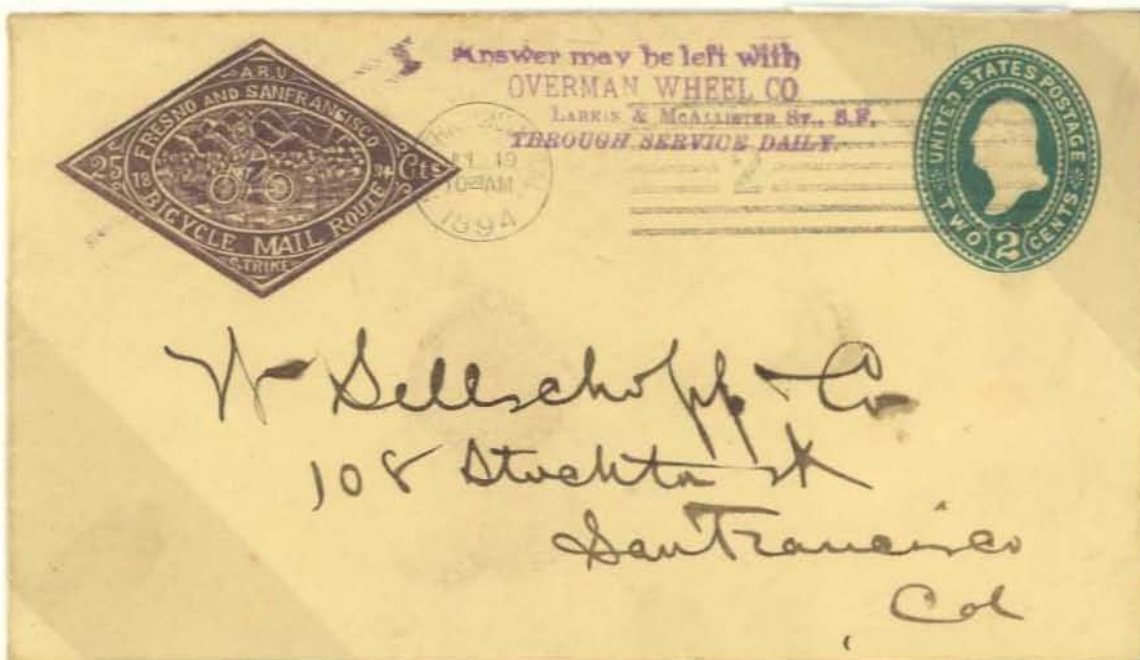 A.R.U.
FRESNO AND SANFRANCISCO
25 Cts
18 94
BICYCLE MAIL ROUTE
STRIKE
Answer may be left with
OVERMAN WHEEL CO
LARKIN & MCALLISTER ST., S.F.
THROUGH SERVICE DAILY.
19
10 AM
1894
2
UNITED STATES POSTAGE
TWO 2 CENTS
W Sellschopp Co
108 Stockton St
San Francisco
Cal